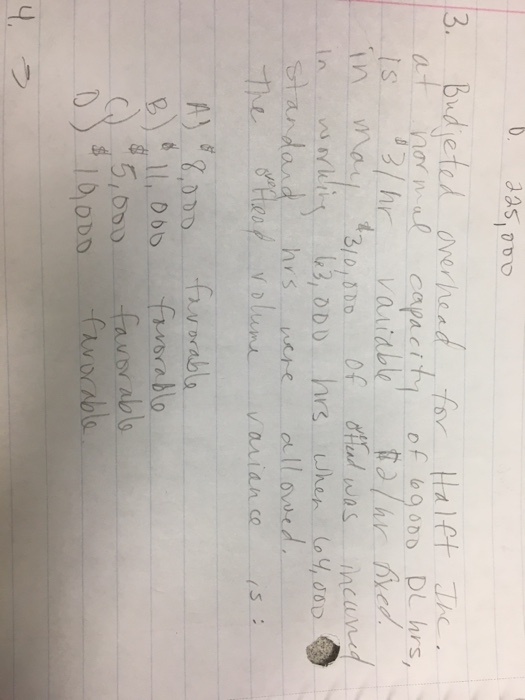 D. 225,000
3. Budjeted overhead for Halft Inc.
at normal capacity of 69000 DL hrs,
is $3/hr variable $2/hr fixed.
in may, $310,000 of overhead was incurred
in working 63,000 hrs when 64,000
standard hrs were allowed.
The overhead volume variance is:
A) $8,000 favorable
B) $11,000 favorable
C) $5,000 favorable
D) $10,000 favorable
4.